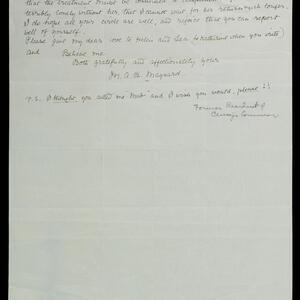 that the treatment must be continued
terribly lonely without her, that I cannot wait for her return much longer.
I do hope all your circle are well, and rejoice that you can report
well of yourself.
Please give my dear love to Helen and Lea (& Katharine when you write)
and Believe me
Both gratefully and affectionately yours
M. A. Maynard.
P.S. I thought you called me and I wish you would, please!!
Former Resident of
Chicago Commons